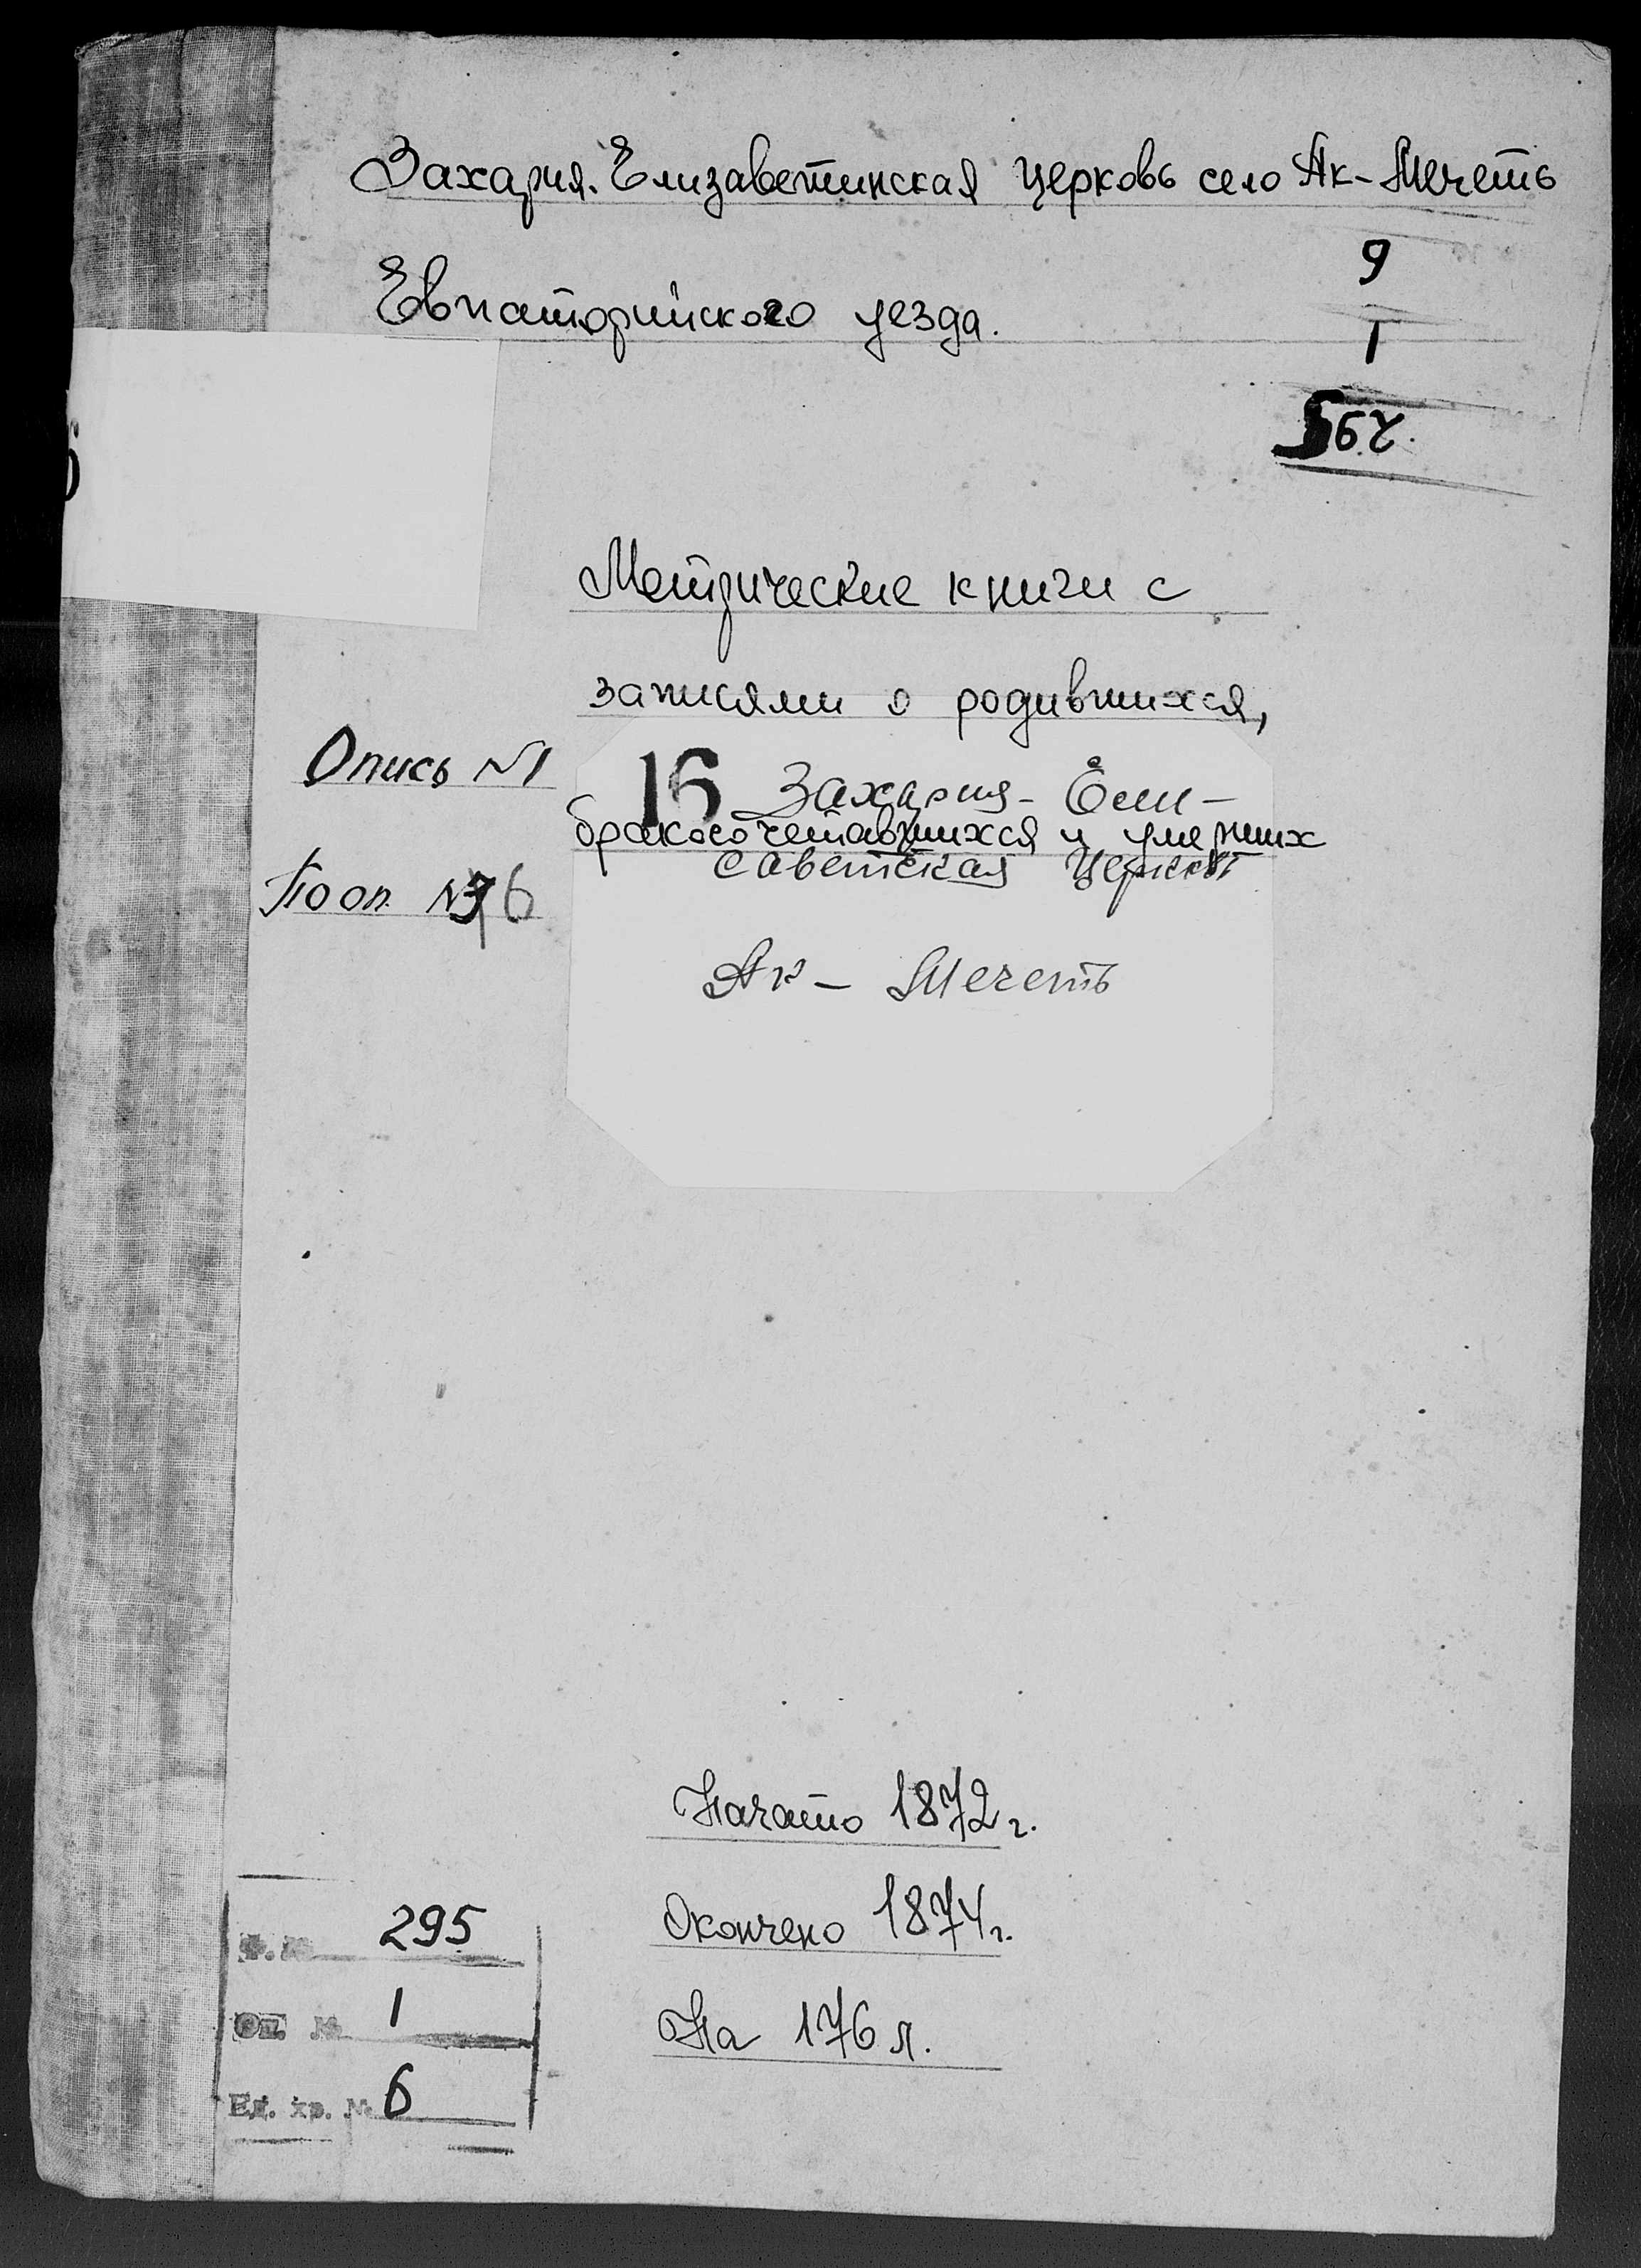 Захария-Елизаветинская церковь село Ак-Мечеть
Евпаторийского уезда.
9
1
Метрические книги с
записями о родившихся,
Опись №1
16 Захария-Ели-
бракосочетавшихся и умерших
саветская Церковь
По оп. № 6
Ак-Мечеть
Начато 1872 г.
Окончено 1874 г.
На 176 л.
Ф. № 295
Оп. № 1
Ед. хр. № 6